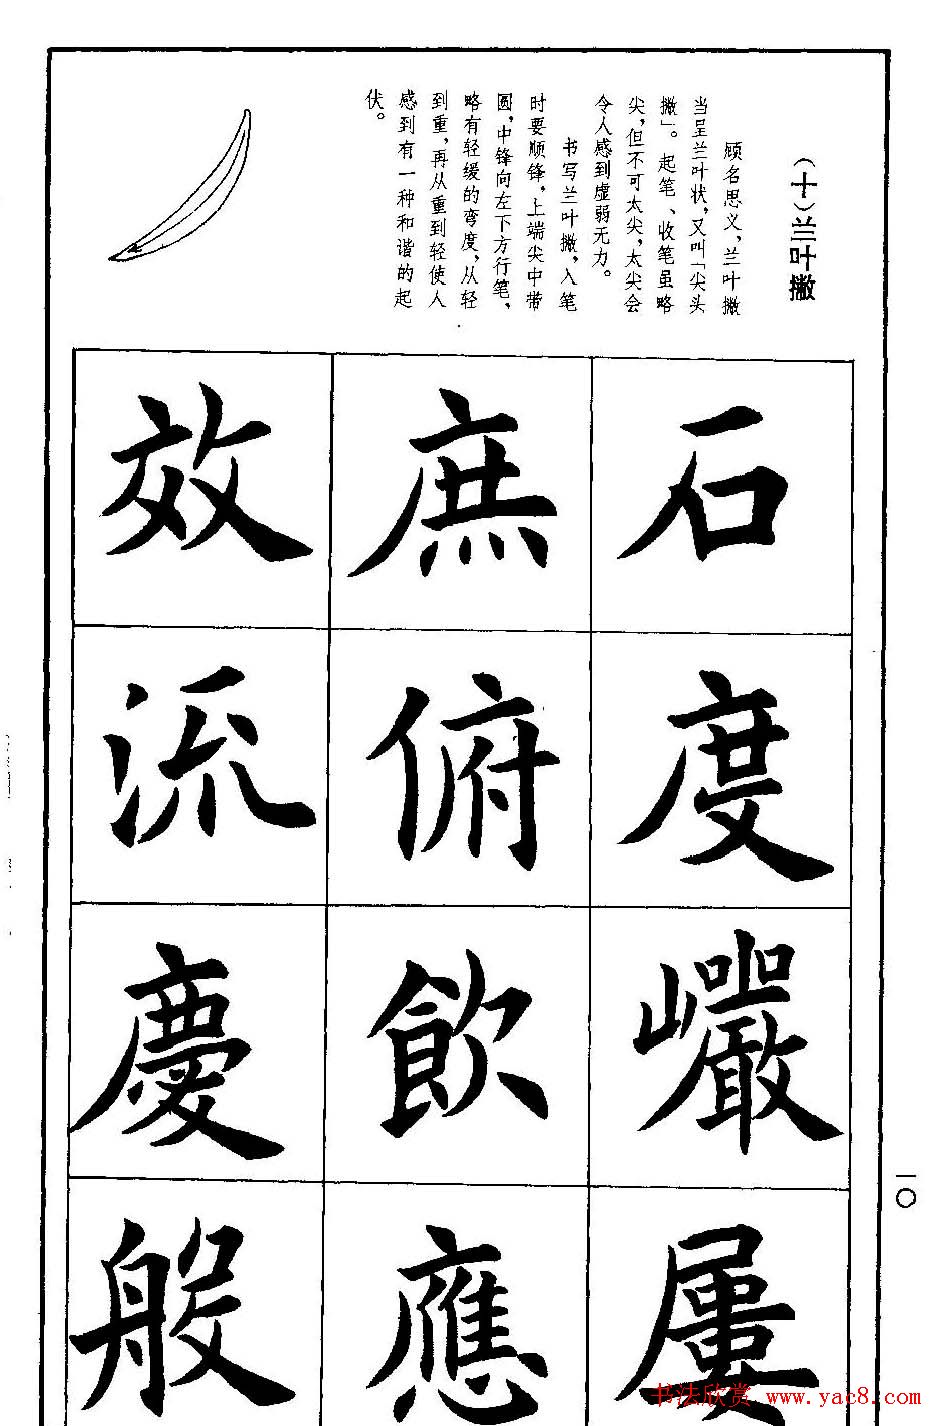 (十)兰叶撇
顾名思义,兰叶撇
当呈兰叶状,又叫「尖头
撇」。起笔、收笔虽略
尖,但不可太尖,太尖会
令人感到虚弱无力。
书写兰叶撇,入笔
时要顺锋,上端尖中带
圆,中锋向左下方行笔,
略有轻缓的弯度,从轻
到重,再从重到轻使人
感到有一种和谐的起
伏。
石度巗屢
庶俯飲應
效流慶般
一〇
书法欣赏 www.yac8.com